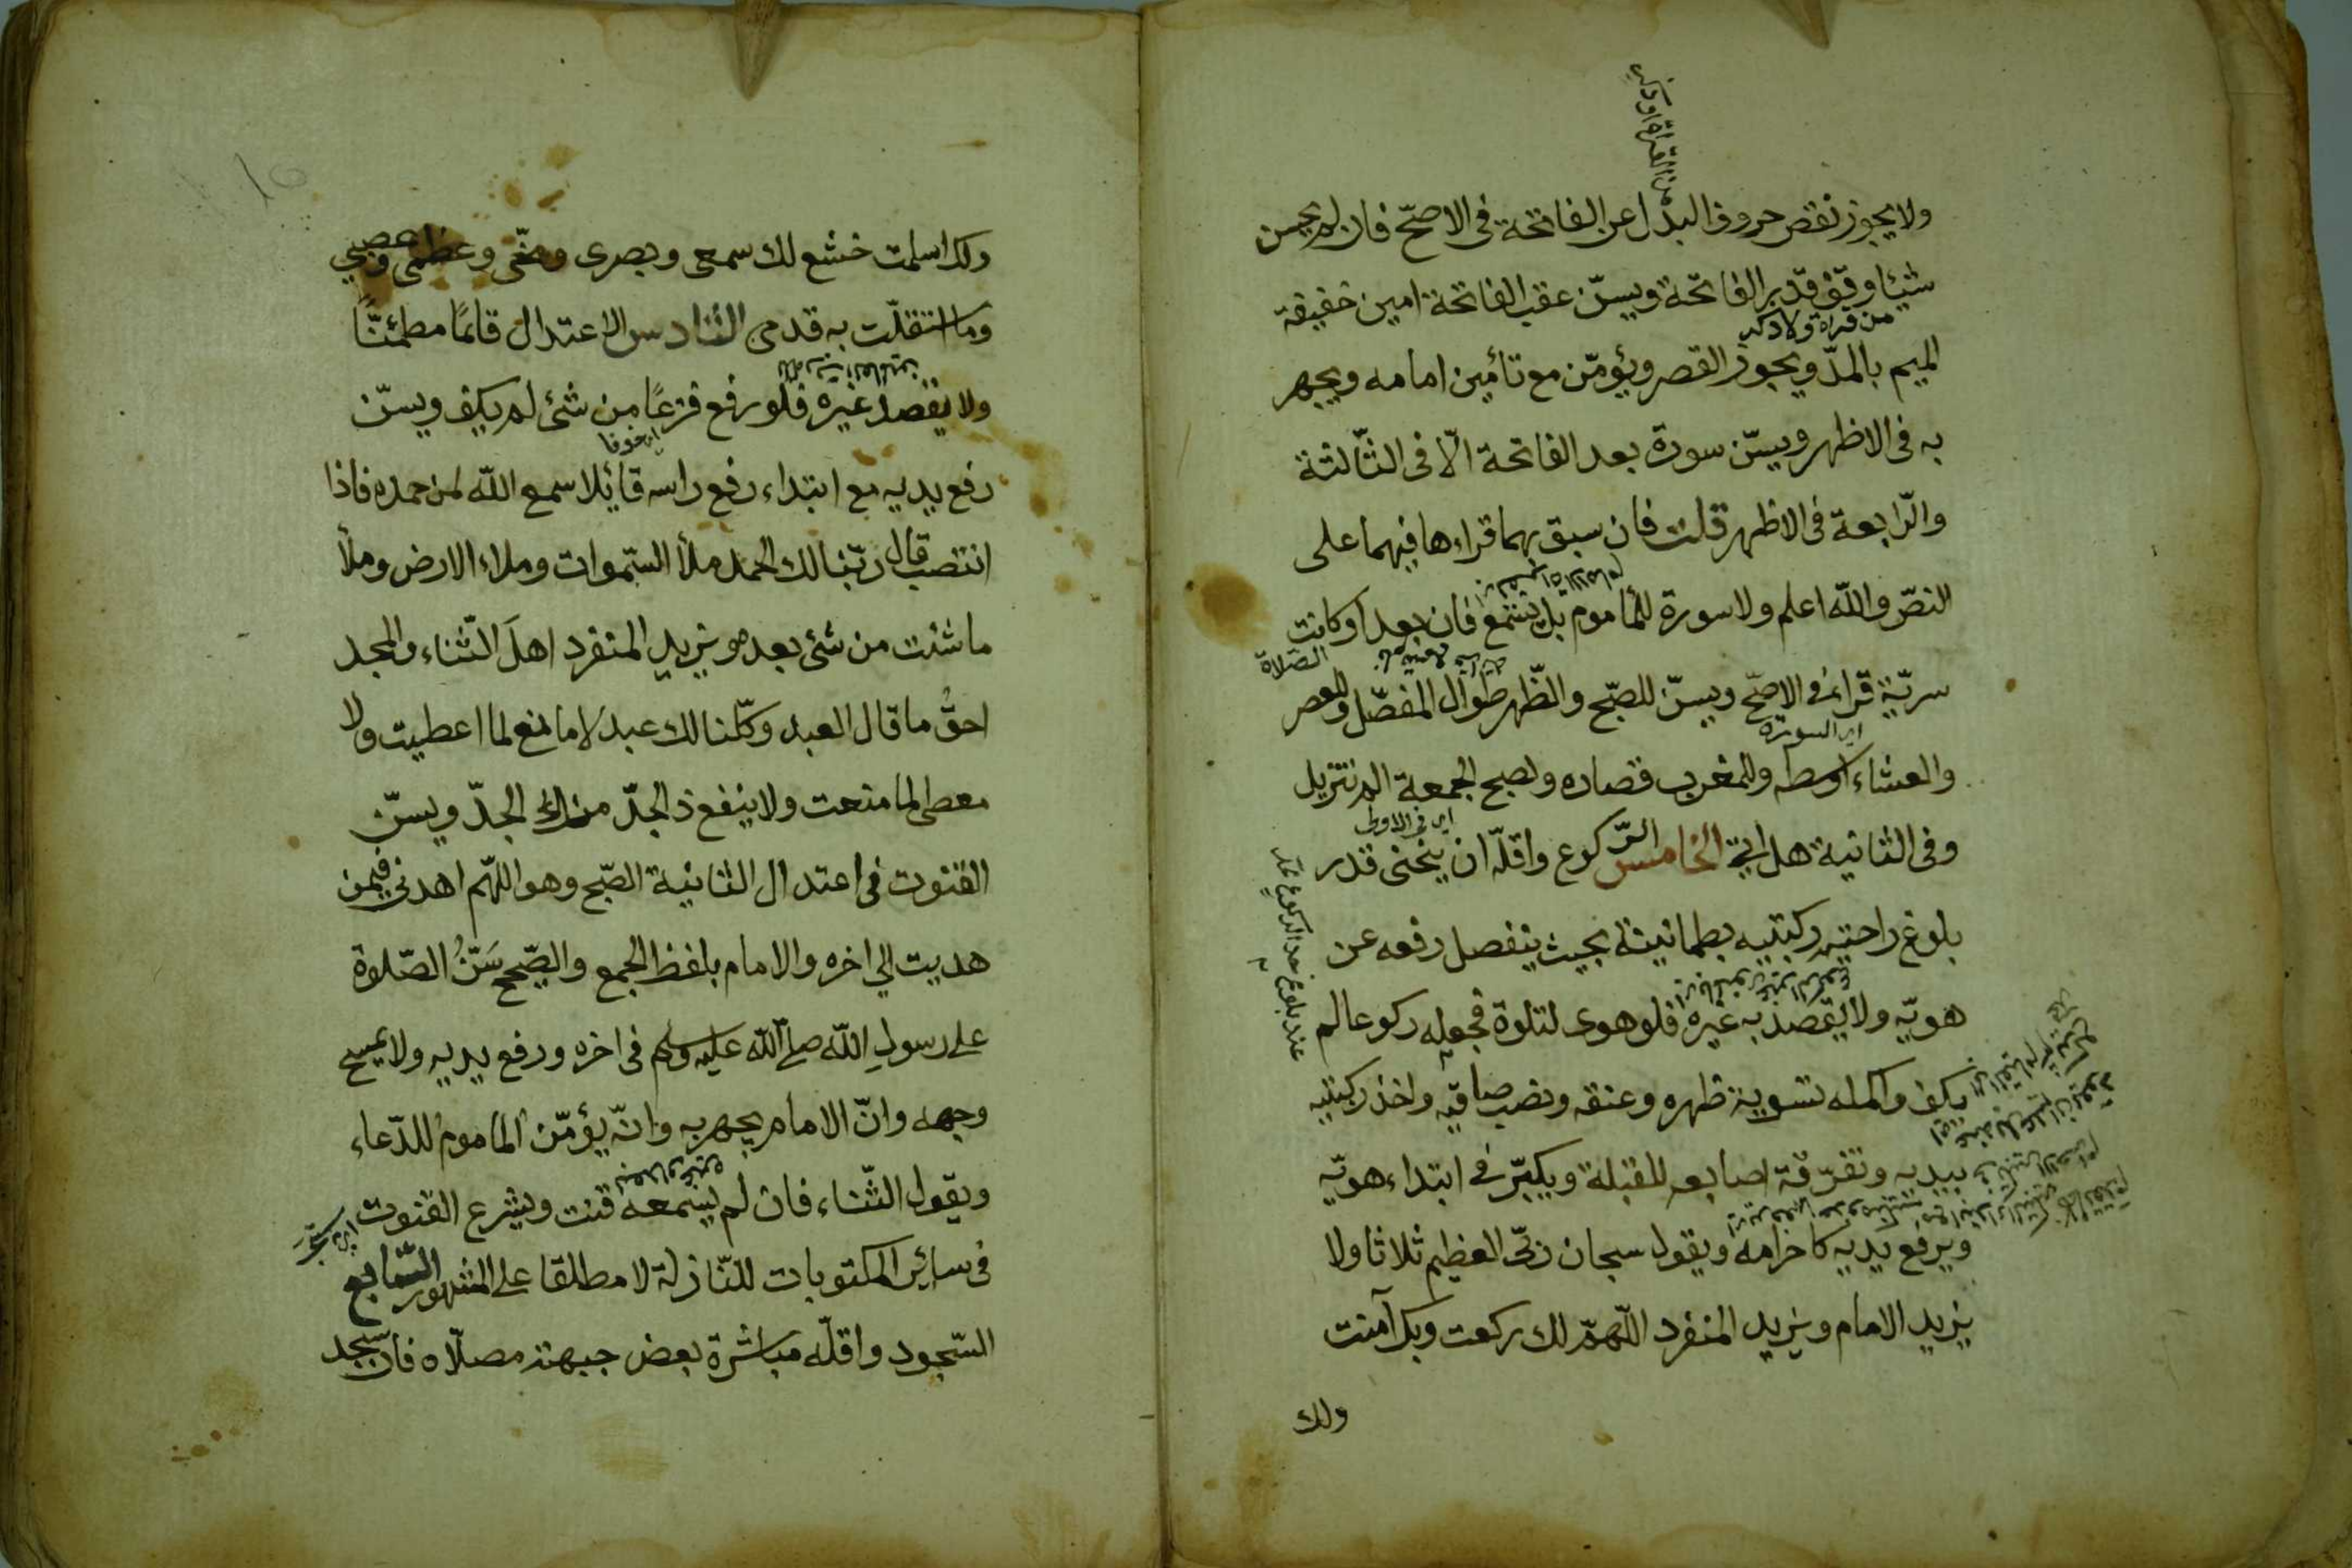 من القراة او ذكر
ولا يجوز نقص حروف البدل عن الفاتحة فى الاصحّ فان لم يحسن
شيئا وقف قدر الفاتحة ويسنّ عقب الفاتحة امين خفيفة
من قراة ولا ذكر
الميم بالمدّ ويجوز القصر ويؤمّن مع تأمين امامه ويجهر
به فى الاظهر ويسنّ سورة بعد الفاتحة الّا فى الثّالثة
والرّابعة فى الاظهر قلت فان سبق بهما قراءها فيهما على
النصّ واللّه اعلم ولا سورة للمأموم بل يستمع فان بعد او كانت
الصّلاة
سريّة قرا فى الاصحّ ويسنّ للصّبح والظّهر طوال المفصّل وللعصر
اى السورة
والعشاء اوسطه وللمغرب قصاره ولصبح الجمعة الم تنزيل
اى فى الاولى
وفى الثانية هل اتى الخامس الرّكوع واقلّه ان ينحنى قدر
بلوغ راحتيه ركبتيه بطمانينة بحيث ينفصل رفعه عن
هويّه ولا يقصد به غيره فلو هوى لتلاوة فجعله ركوعا لم
عند بلوغ حد الركوع
يكف واكمله تسوية ظهره وعنقه ونصب ساقيه واخذ ركبتيه
بيديه وتفرقة اصابعه للقبلة ويكبّر فى ابتداء هويّه
ويرفع يديه كاحرامه ويقول سبحان ربّى العظيم ثلاثا ولا
يزيد الامام ويزيد المنفرد اللّهمّ لك ركعت وبك آمنت
ولك
ولك اسلمت خشع لك سمعى وبصرى ومخّى وعظمى وعصبي
وما استقلّت به قدمى السّادس الاعتدال قائمًا مطمئنًّا
للّه ربّ العالمين
ولا يقصد غيره فلو رفع فزعًا من شئ لم يكف ويسنّ
اى خوفا
رفع يديه مع ابتداء رفع راسه قائلا سمع اللّه لمن حمده فاذا
انتصب قال ربّنا لك الحمد ملأ السّموات وملاء الارض وملأ
ما شئت من شئ بعد ويزيد المنفرد اهلَ الثّناء والمجد
احقُّ ما قال العبد وكلّنا لك عبد لا مانع لما اعطيت ولا
معطى لما منعت ولا ينفع ذا الجدّ منك الجدّ ويسنّ
القنوت فى اعتدال الثانية الصّبح وهو اللّهم اهدنى فيمن
هديت الي اخره والامام بلفظ الجمع والصّحيح سَنّ الصّلوة
على رسول اللّه صلى اللّه عليه وسلم فى اخره ورفع يديه ولا يمسح
وجهه وانّ الامام يجهر به وانّه يؤمّن المأموم للدّعاء
ويقول الثّناء فان لم يسمعه قنت ويشرع القنوت
فى سائر المكتوبات للنّازلة لا مطلقا على المشهور السّابع
السّجود واقلّه مباشرة بعض جبهته مصلّاه فان سجد